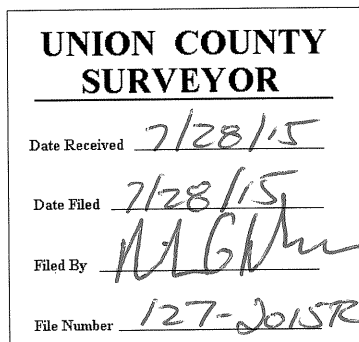 UNION COUNTY
SURVEYOR
Date Received 7/28/15
Date Filed 7/28/15
Filed By
File Number 127-2015R